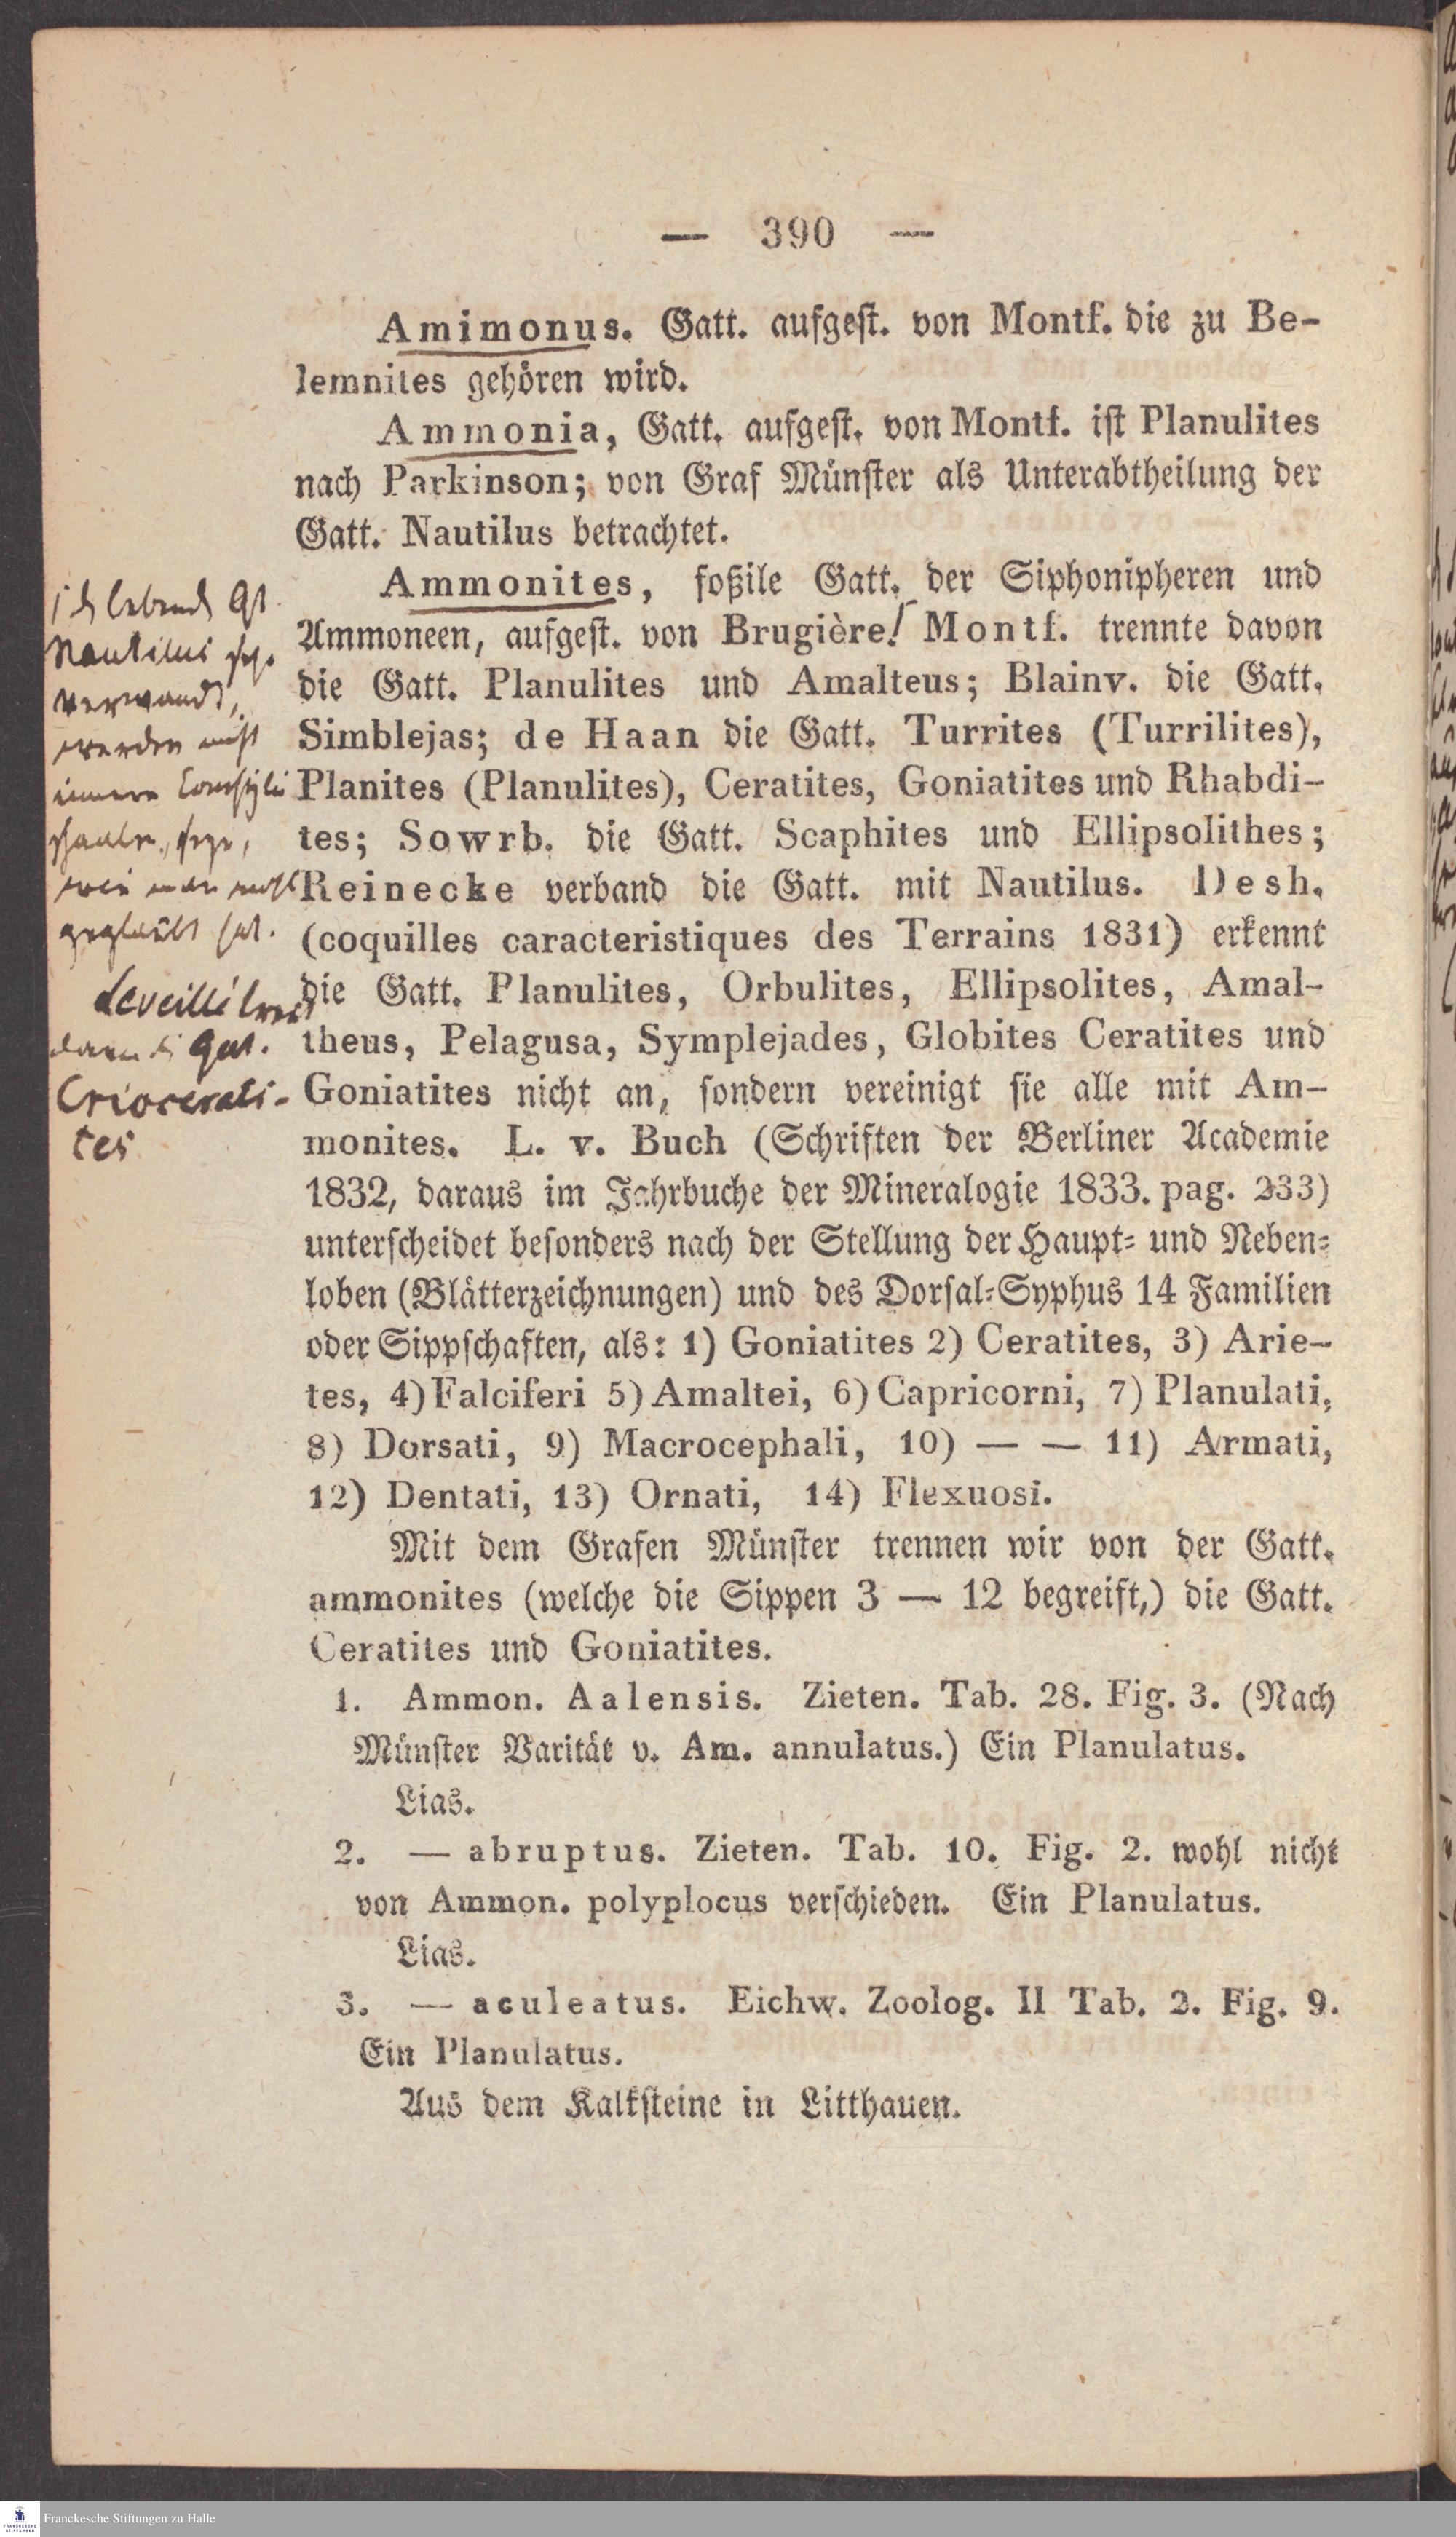 — 390 —
Amimonus. Gatt. aufgest. von Montf. die zu Be-
lemnites gehören wird.
Ammonia, Gatt. aufgest. von Montf. ist Planulites
nach Parkinson; von Graf Münster als Unterabtheilung der
Gatt. Nautilus betrachtet.
Ammonites, foßile Gatt. der Siphonipheren und
Ammoneen, aufgest. von Brugière! Montf. trennte davon
die Gatt. Planulites und Amalteus; Blainv. die Gatt.
Simblejas; de Haan die Gatt. Turrites (Turrilites),
Planites (Planulites), Ceratites, Goniatites und Rhabdi-
tes; Sowrb. die Gatt. Scaphites und Ellipsolithes;
Reinecke verband die Gatt. mit Nautilus. Desh.
(coquilles caracteristiques des Terrains 1831) erkennt
die Gatt. Planulites, Orbulites, Ellipsolites, Amal-
theus, Pelagusa, Symplejades, Globites Ceratites und
Goniatites nicht an, sondern vereinigt sie alle mit Am-
monites. L. v. Buch (Schriften der Berliner Academie
1832, daraus im Jahrbuche der Mineralogie 1833. pag. 233)
unterscheidet besonders nach der Stellung der Haupt- und Neben-
loben (Blätterzeichnungen) und des Dorsal-Syphus 14 Familien
oder Sippschaften, als: 1) Goniatites 2) Ceratites, 3) Arie-
tes, 4) Falciferi 5) Amaltei, 6) Capricorni, 7) Planulati,
8) Dorsati, 9) Macrocephali, 10) — — 11) Armati,
12) Dentati, 13) Ornati, 14) Flexuosi.
Mit dem Grafen Münster trennen wir von der Gatt.
ammonites (welche die Sippen 3 — 12 begreift,) die Gatt.
Ceratites und Goniatites.
1. Ammon. Aalensis. Zieten. Tab. 28. Fig. 3. (Nach
Münster Varität v. Am. annulatus.) Ein Planulatus.
Lias.
2. — abruptus. Zieten. Tab. 10. Fig. 2. wohl nicht
von Ammon. polyplocus verschieden. Ein Planulatus.
Lias.
3. — aculeatus. Eichw. Zoolog. II Tab. 2. Fig. 9.
Ein Planulatus.
Aus dem Kalksteine in Litthauen.
Nautilus
verwandt,
werden nicht
innere
geglaubt hat.
Leveillé
Gat.
Criocerati-
tes
Franckesche Stiftungen zu Halle